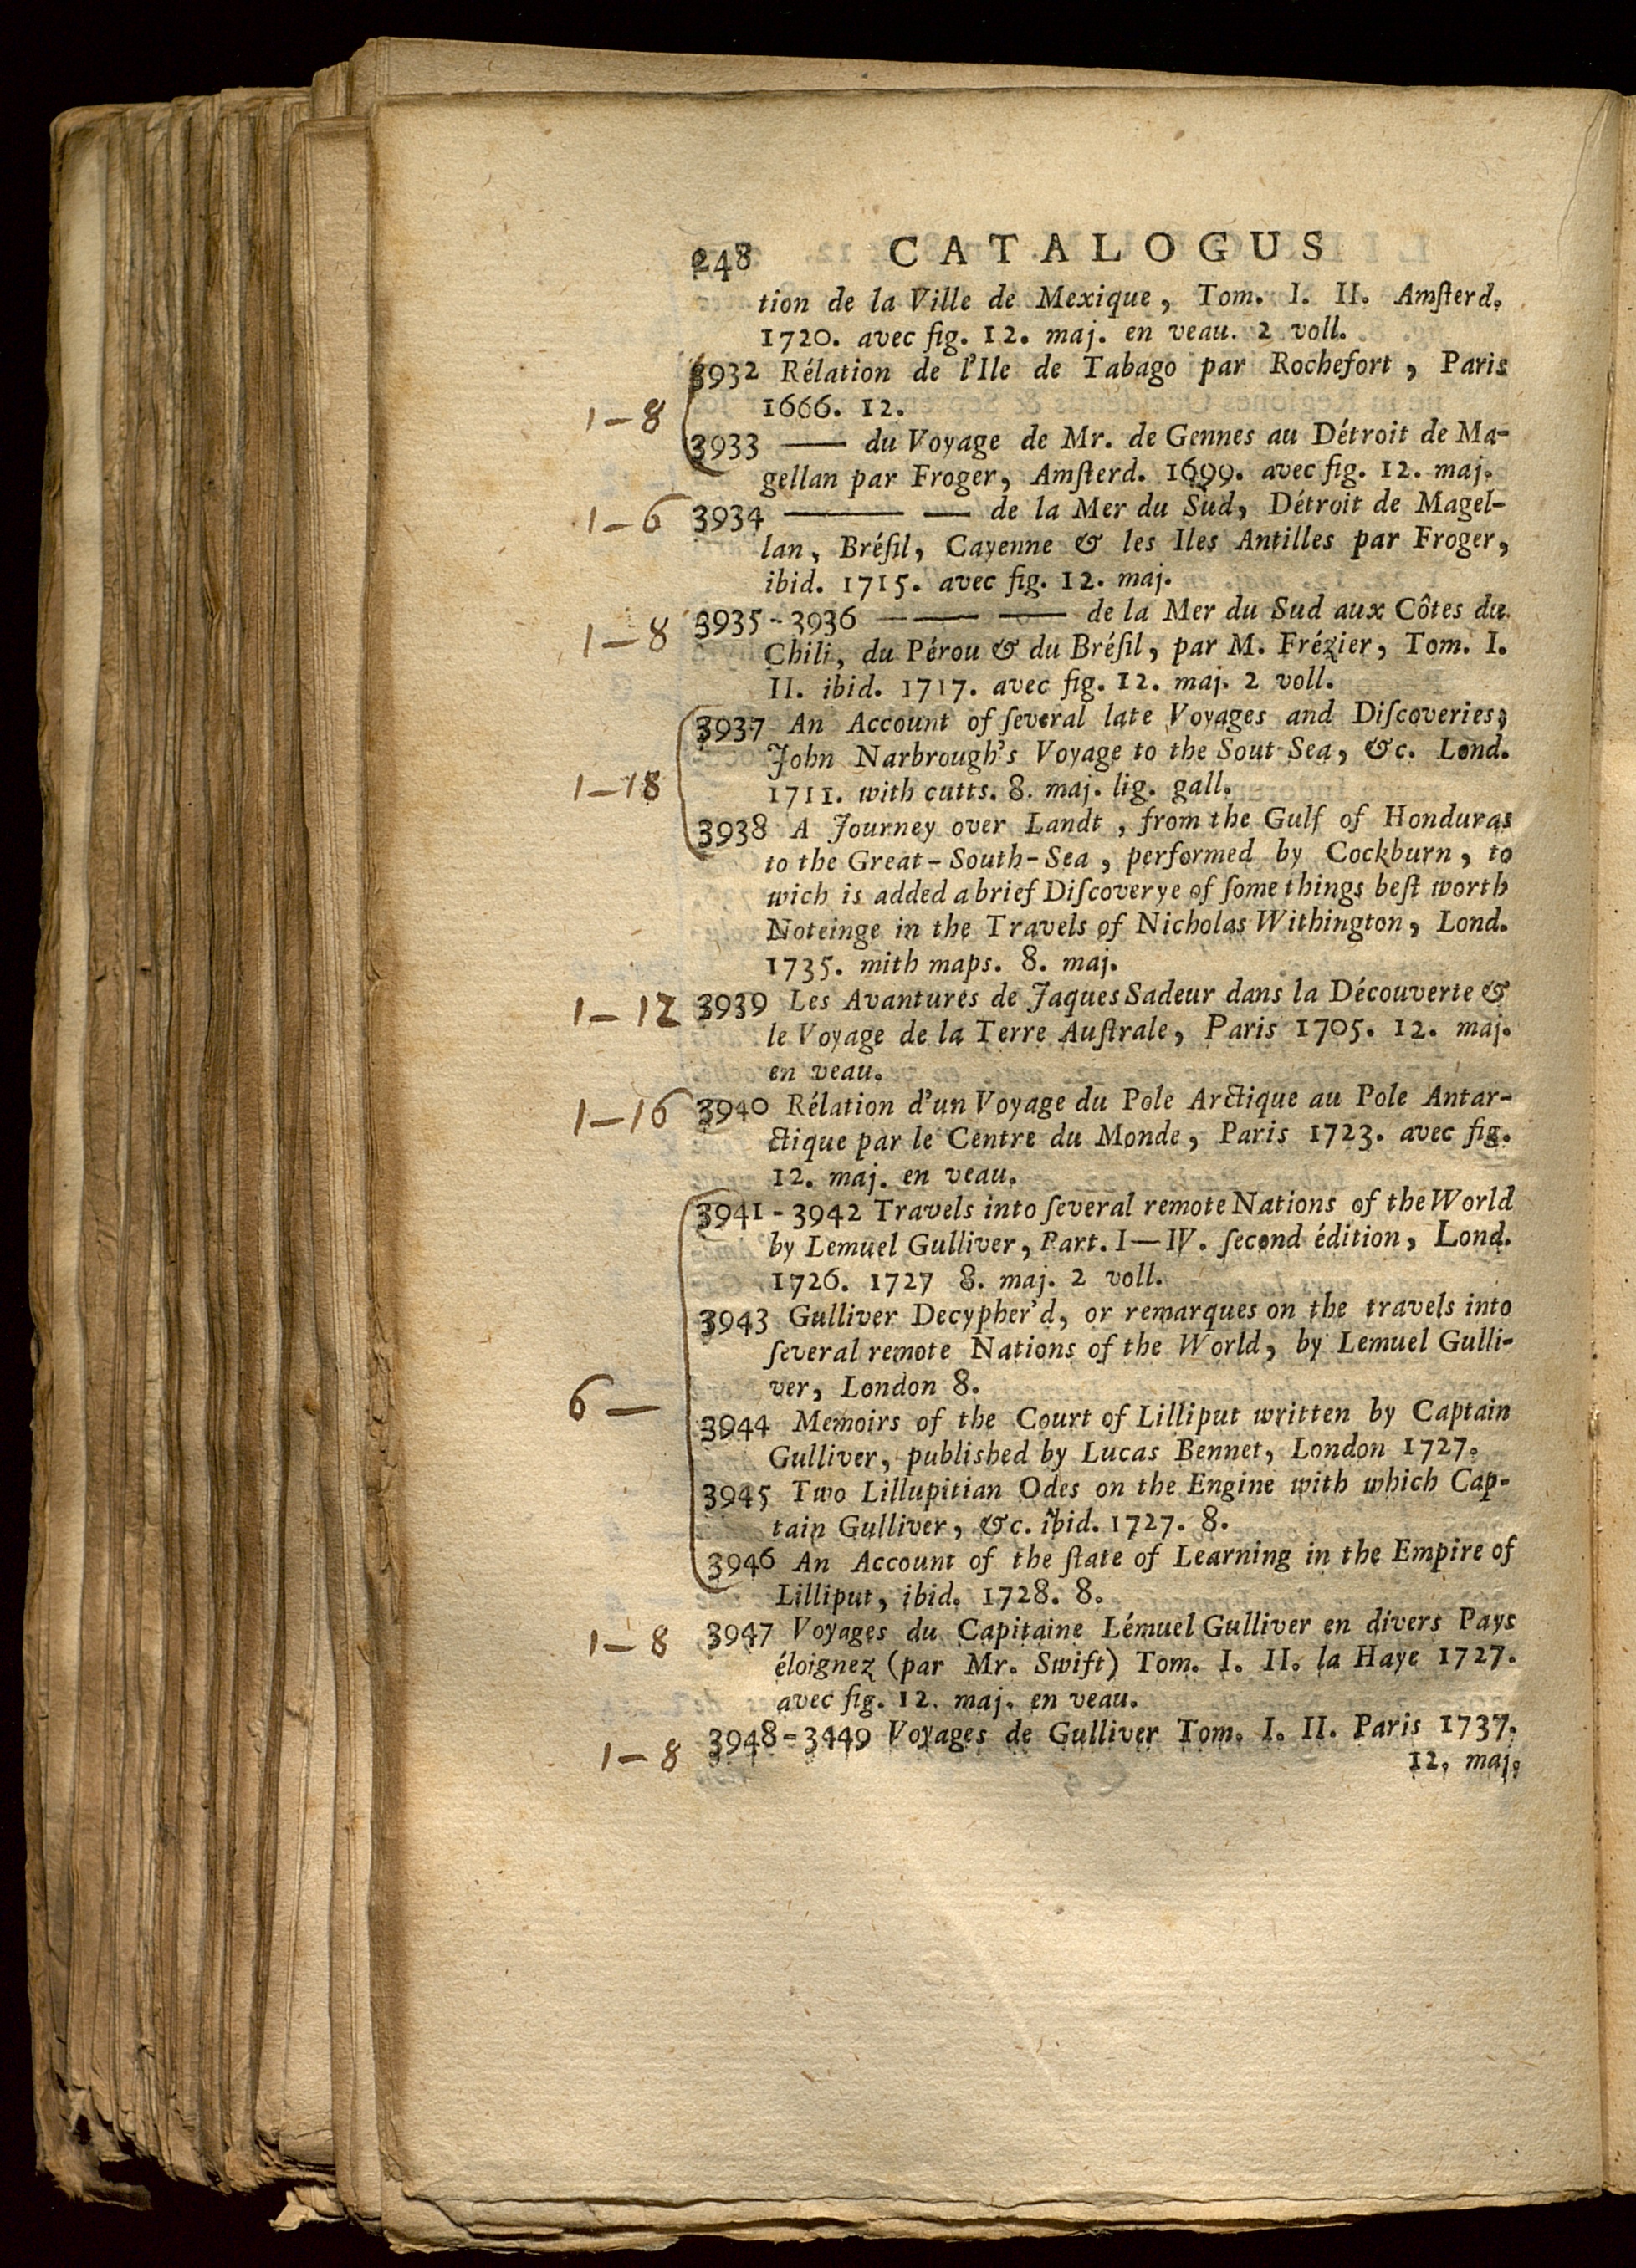 248 CATALOGUS
tion de la Ville de Mexique, Tom. I. II. Amſterd.
1720. avec fig. 12. maj. en veau. 2 voll.
3932 Rélation de l'Ile de Tabago par Rochefort, Paris
1–8 1666. 12.
3933 —— du Voyage de Mr. de Gennes au Détroit de Ma-
gellan par Froger, Amſterd. 1699. avec fig. 12. maj.
1–6 3934 ——— —— de la Mer du Sud, Détroit de Magel-
lan, Bréſil, Cayenne & les Iles Antilles par Froger,
ibid. 1715. avec fig. 12. maj.
1–8 3935-3936 ——— —— de la Mer du Sud aux Côtes du
Chili, du Pérou & du Bréſil, par M. Frézier, Tom. I.
II. ibid. 1717. avec fig. 12. maj. 2 voll.
3937 An Account of ſeveral late Voyages and Diſcoveries;
John Narbrough's Voyage to the Sout-Sea, &c. Lond.
1–18 1711. with cutts. 8. maj. lig. gall.
3938 A Journey over Landt, from the Gulf of Honduras
to the Great-South-Sea, performed by Cockburn, to
wich is added a brief Diſcoverye of ſome things beſt worth
Noteinge in the Travels of Nicholas Withington, Lond.
1735. mith maps. 8. maj.
1–12 3939 Les Avantures de Jaques Sadeur dans la Découverte &
le Voyage de la Terre Auſtrale, Paris 1705. 12. maj.
en veau.
1–16 3940 Rélation d'un Voyage du Pole Arctique au Pole Antar-
ctique par le Centre du Monde, Paris 1723. avec fig.
12. maj. en veau.
3941-3942 Travels into ſeveral remote Nations of the World
by Lemuel Gulliver, Part. I—IV. ſecond édition, Lond.
1726. 1727 8. maj. 2 voll.
3943 Gulliver Decypher'd, or remarques on the travels into
ſeveral remote Nations of the World, by Lemuel Gulli-
ver, London 8.
6— 3944 Memoirs of the Court of Lilliput written by Captain
Gulliver, published by Lucas Bennet, London 1727.
3945 Two Lillupitian Odes on the Engine with which Cap-
tain Gulliver, &c. ibid. 1727. 8.
3946 An Account of the ſtate of Learning in the Empire of
Lilliput, ibid. 1728. 8.
1–8 3947 Voyages du Capitaine Lémuel Gulliver en divers Pays
éloignez (par Mr. Swift) Tom. I. II. la Haye 1727.
avec fig. 12. maj. en veau.
1–8 3948-3449 Voyages de Gulliver Tom. I. II. Paris 1737.
12. maj.